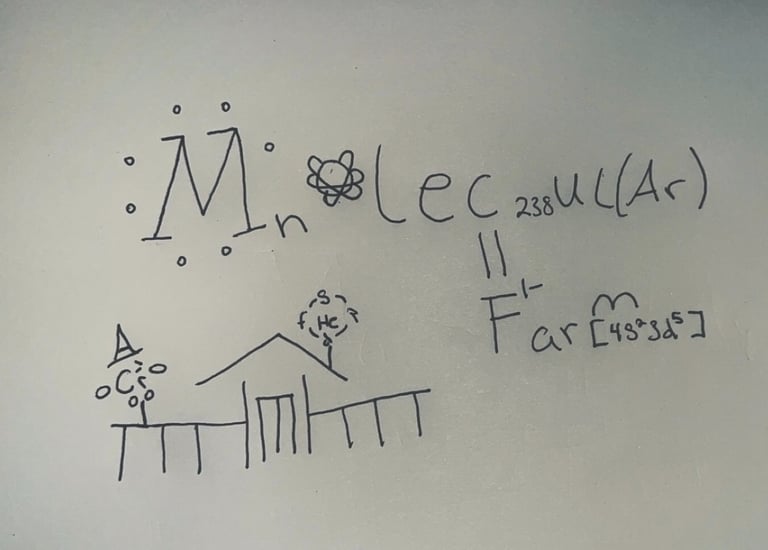 Mn lec 238UL(Ar)
F1- arm [4s²3d⁵]
S
He
A
Cr